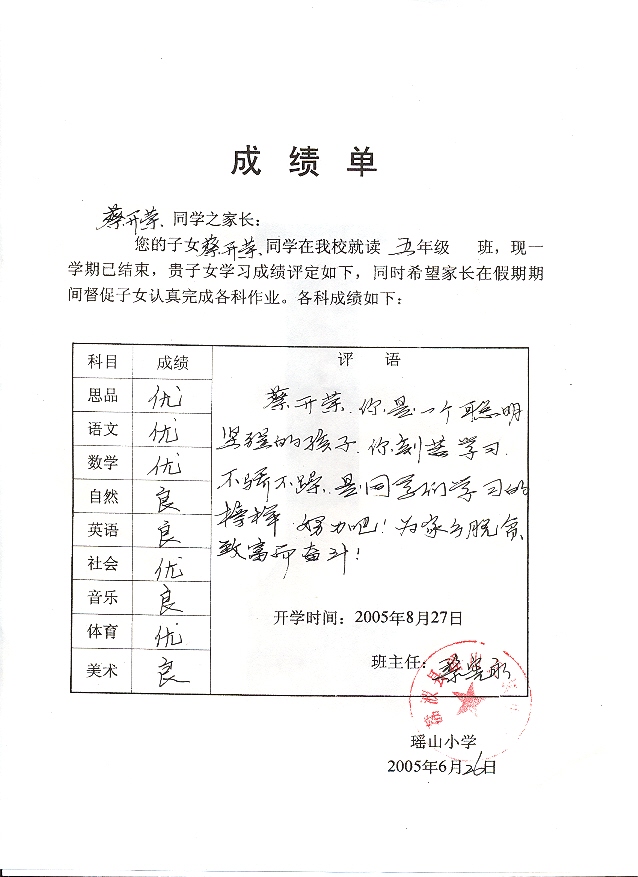 成绩单
蔡开荣、同学之家长：
您的子女蔡开荣、同学在我校就读 五年级 班，现一
学期已结束，贵子女学习成绩评定如下，同时希望家长在假期期
间督促子女认真完成各科作业。各科成绩如下：
科目 成绩 评 语
思品 优
语文 优
数学 优
自然 良
英语 良
社会 优
音乐 良
体育 优
美术 良
蔡开荣、你是一个聪明
坚强的孩子.你刻苦学习.
不骄不躁.是同学们学习的
榜样.努力吧！为家乡脱贫
致富而奋斗！
开学时间：2005年8月27日
班主任：
瑶山小学
2005年6月26日